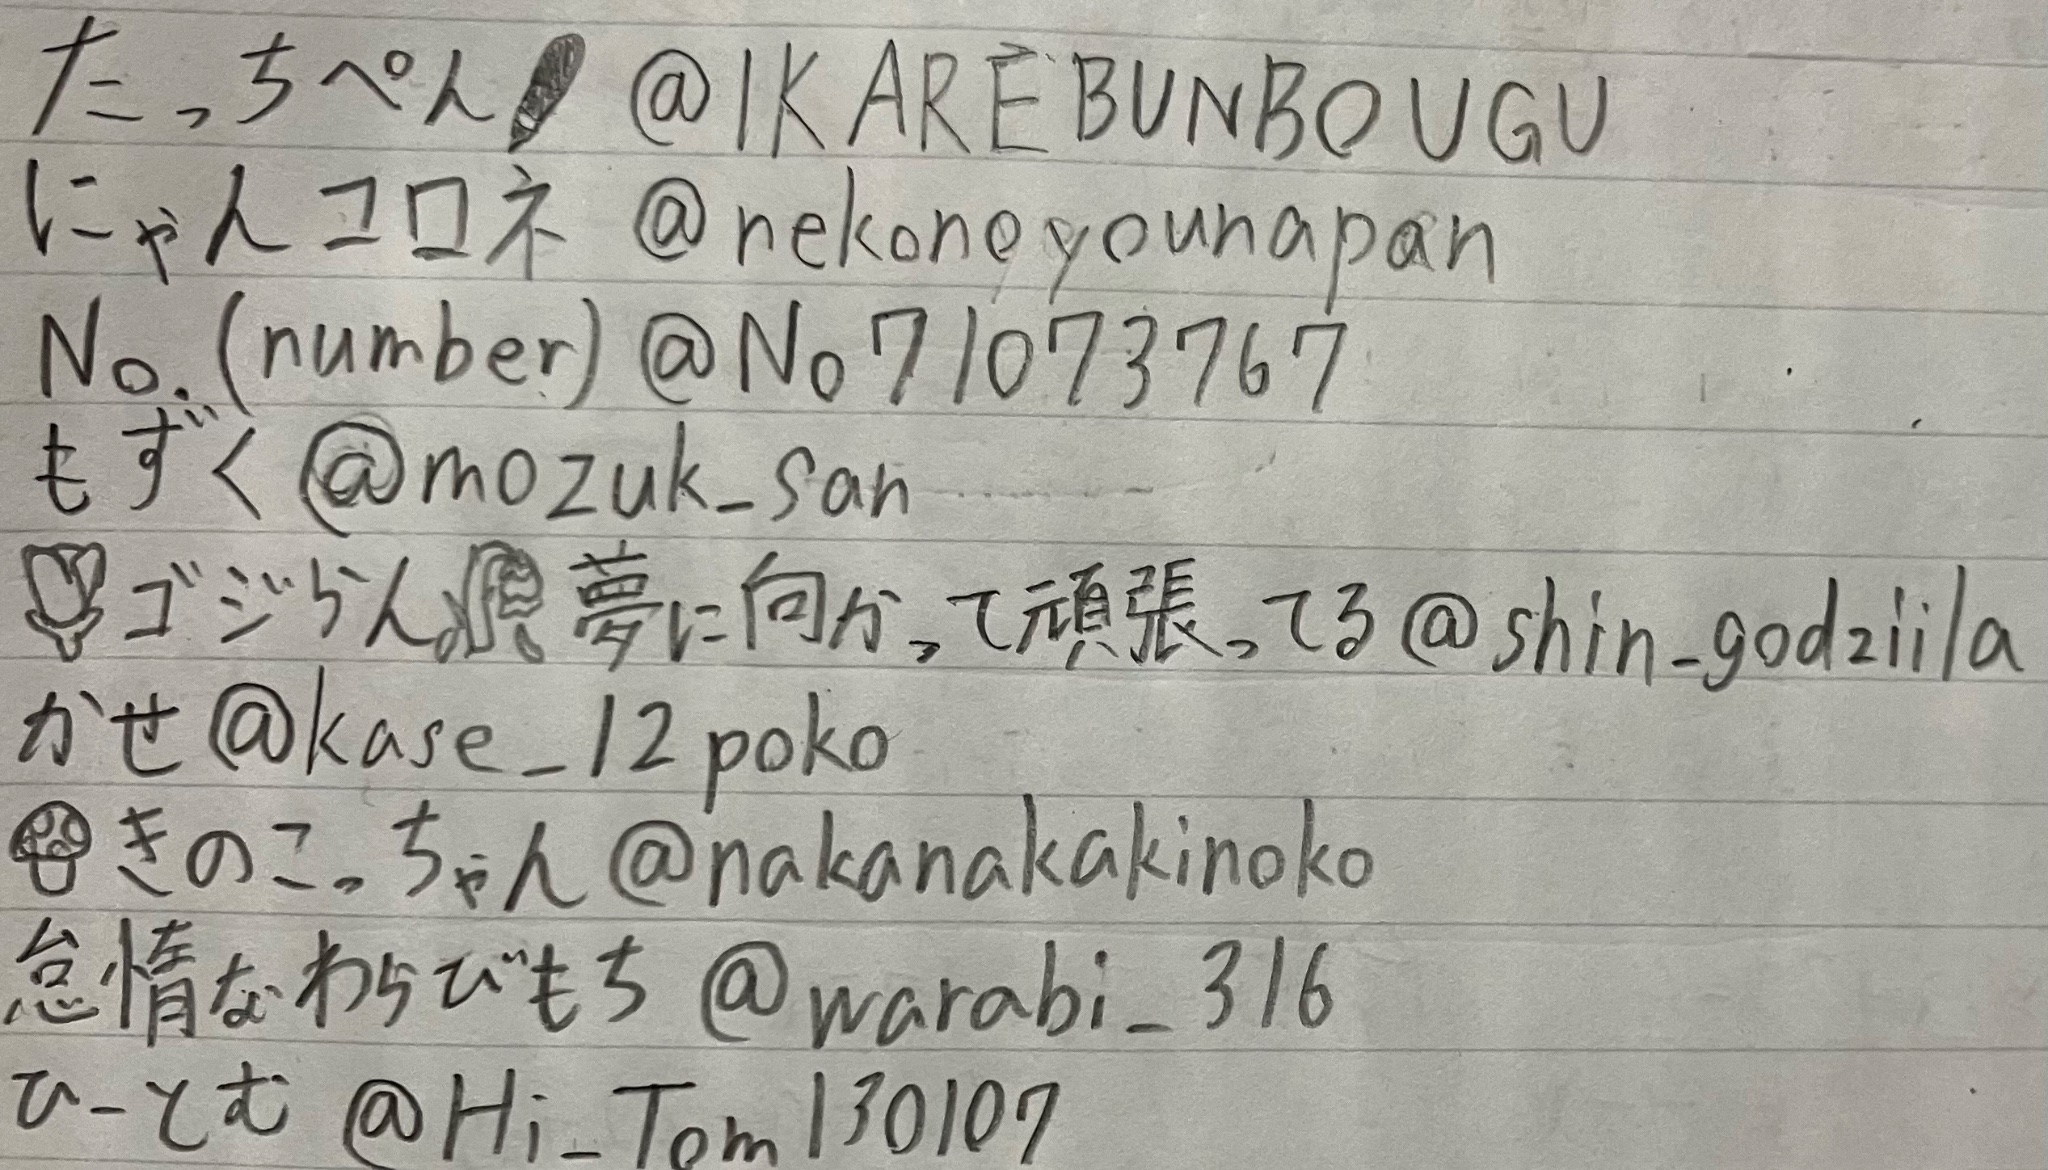 たっちぺん @IKAREBUNBOUGU
にゃんコロネ @nekonoyounapan
No.(number) @No71073767
もずく @mozuk_san
ゴジらん 夢に向かって頑張ってる @shin_godziila
かせ @kase_12poko
きのこっちゃん @nakanakakinoko
怠惰なわらびもち @warabi_316
ひーとむ @Hi_Tom130107